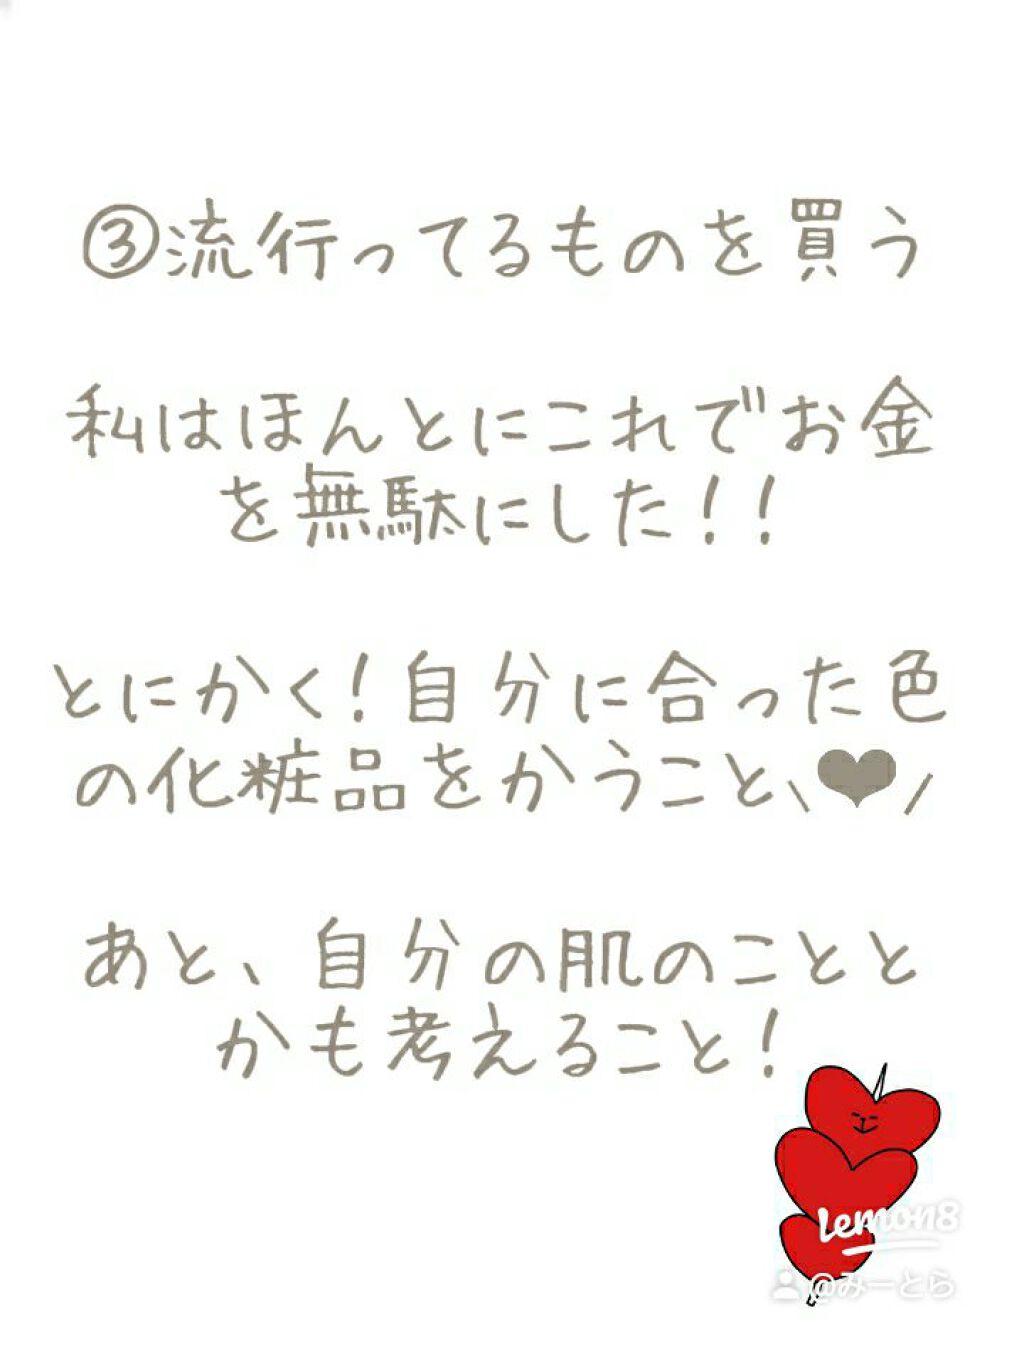 ③流行ってるものを買う
私はほんとにこれでお金
を無駄にした！！
とにかく！自分に合った色
の化粧品をかうこと\❤/
あと、自分の肌のことと
かも考えること！
Lemon8
@みーとら